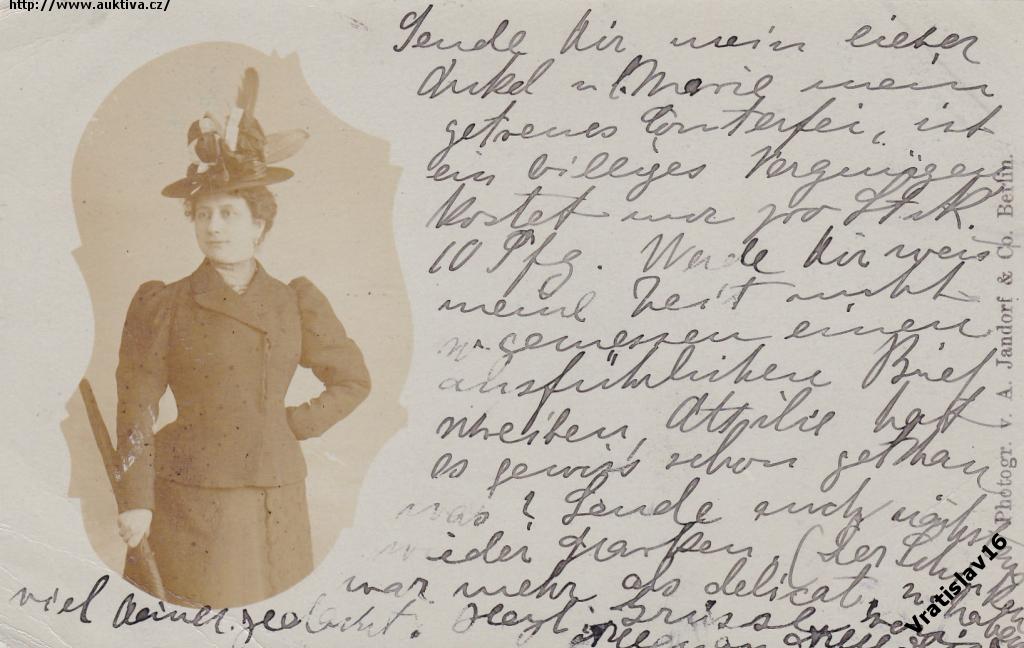 http://www.auktiva.cz/
Sende Dir mein lieber
Onkel u. Marie mein
getreues Conterfei, ist
ein billiges Vergnügen
kostet nur pro Stck.
10 Pfg. Werde Dir weis
meine Zeit nicht
gemessen einen
ausführlichen Brief
schreiben, Ottilie hat
es gewiss schon gethan
was? Sende auch
wieder Marken, (der
war mehr als delicat,
viel Deiner gedacht. Herzl. Grüsse
Photogr. v. A. Jandorf & Co. Berlin.
Vratislav16